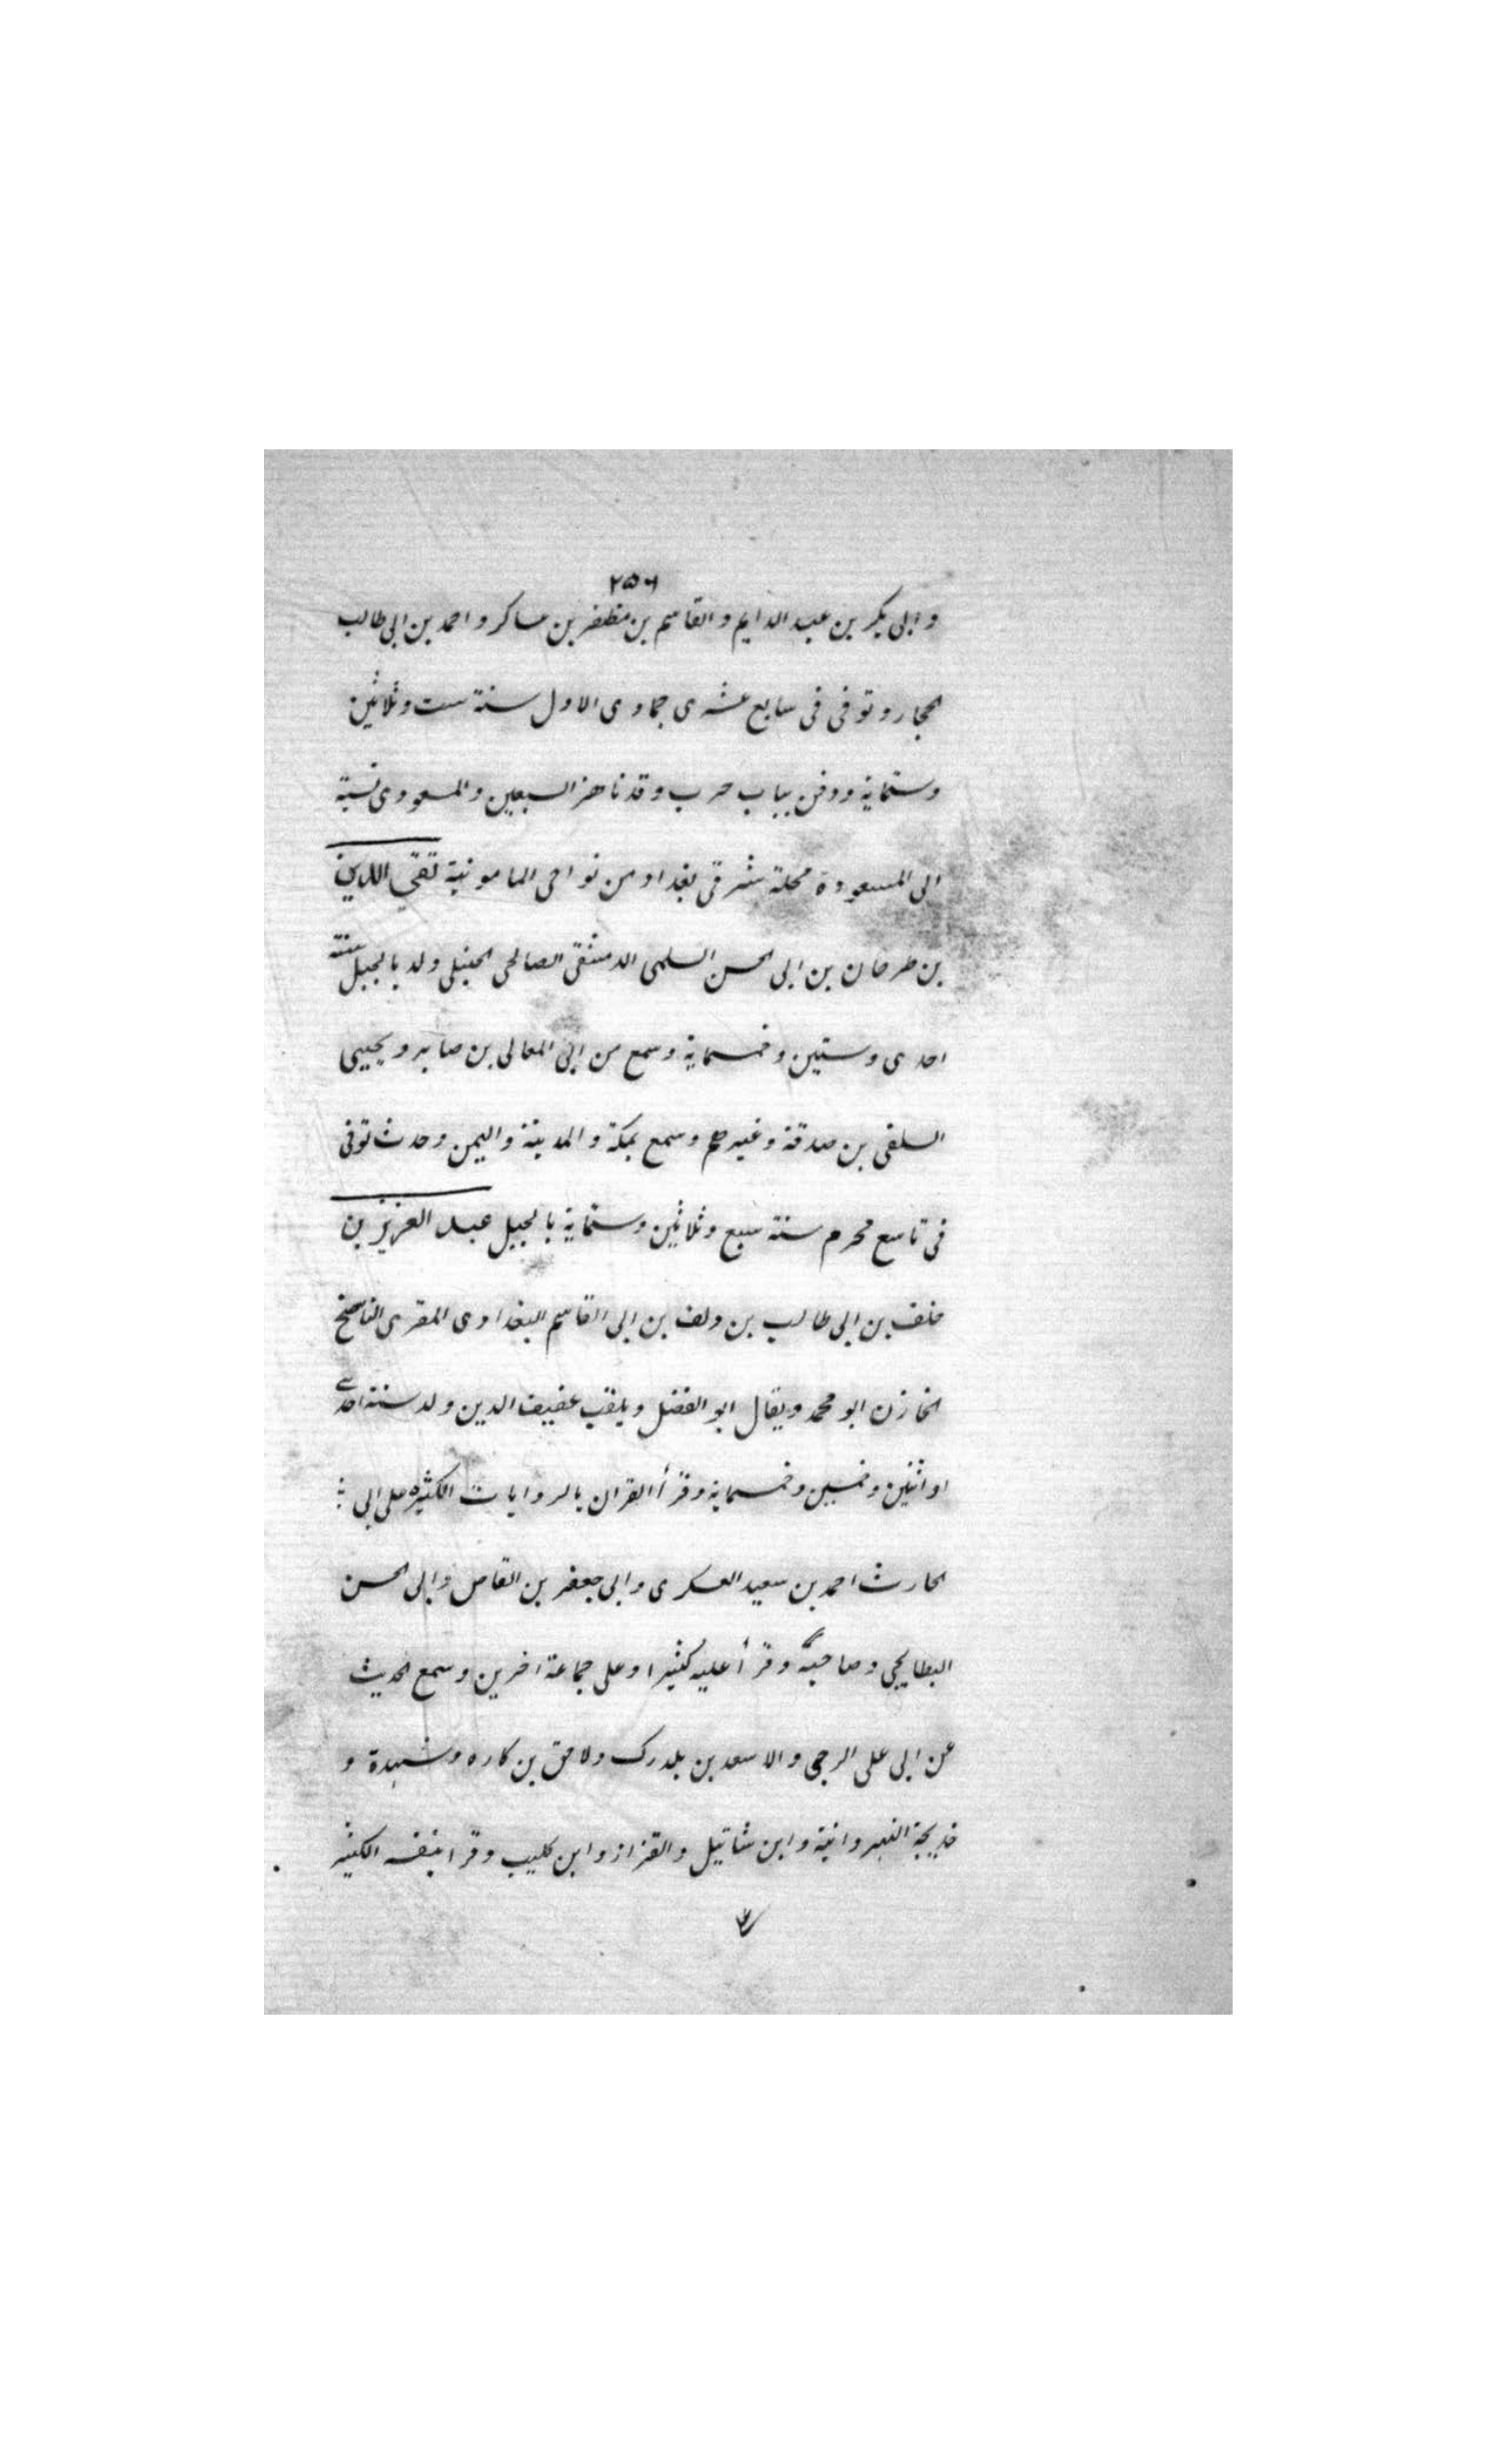 ٢٥٦
وابی بکر بن عبد الدایم والقاسم بن مظفر بن عساکر واحمد بن ابی طالب
الحجار وتوفی فی سابع عشری جمادی الاول سنة ست وثلاثین
وستمایة ودفن بباب حرب وقد ناهز السبعین والمسعودی نسبة
الی المسعودة محلة شرقی بغداد من نواحی المامونیة تقی الدین
بن طرحان بن ابی الحسن السلمی الدمشقی الصالحی الحنبلی ولد بالجبل سنة
احدی وستین وخمسمایة وسمع من ابی المعالی بن صابر ویحیی
السلفی بن صدقة وغیرهم وسمع بمکة والمدینة والیمن وحدث توفی
فی تاسع محرم سنة سبع وثلاثین وستمایة بالجبل عبد العزیز بن
خلف بن ابی طالب بن دلف بن ابی القاسم البغدادی المقری الناسخ
الخازن ابو محمد ویقال ابو الفضل ویلقب عفیف الدین ولد سنة احدی
او اثنین وخمسین وخمسمایة وقرأ القران بالروایات الکثیره علی ابی
الحارث احمد بن سعید العسکری وابی جعفر بن القاص وابی الحسن
البطایحی وصاحبه وقرأ علیه کثیرا وعلی جماعة اخرین وسمع الحدیث
عن ابی علی الرحبی والاسعد بن بلدرک ولاحق بن کاره وشهدة و
خدیجة النهروانیة وابن شاتیل والقزاز وابن کلیب وقرا بنفسه الکثیر